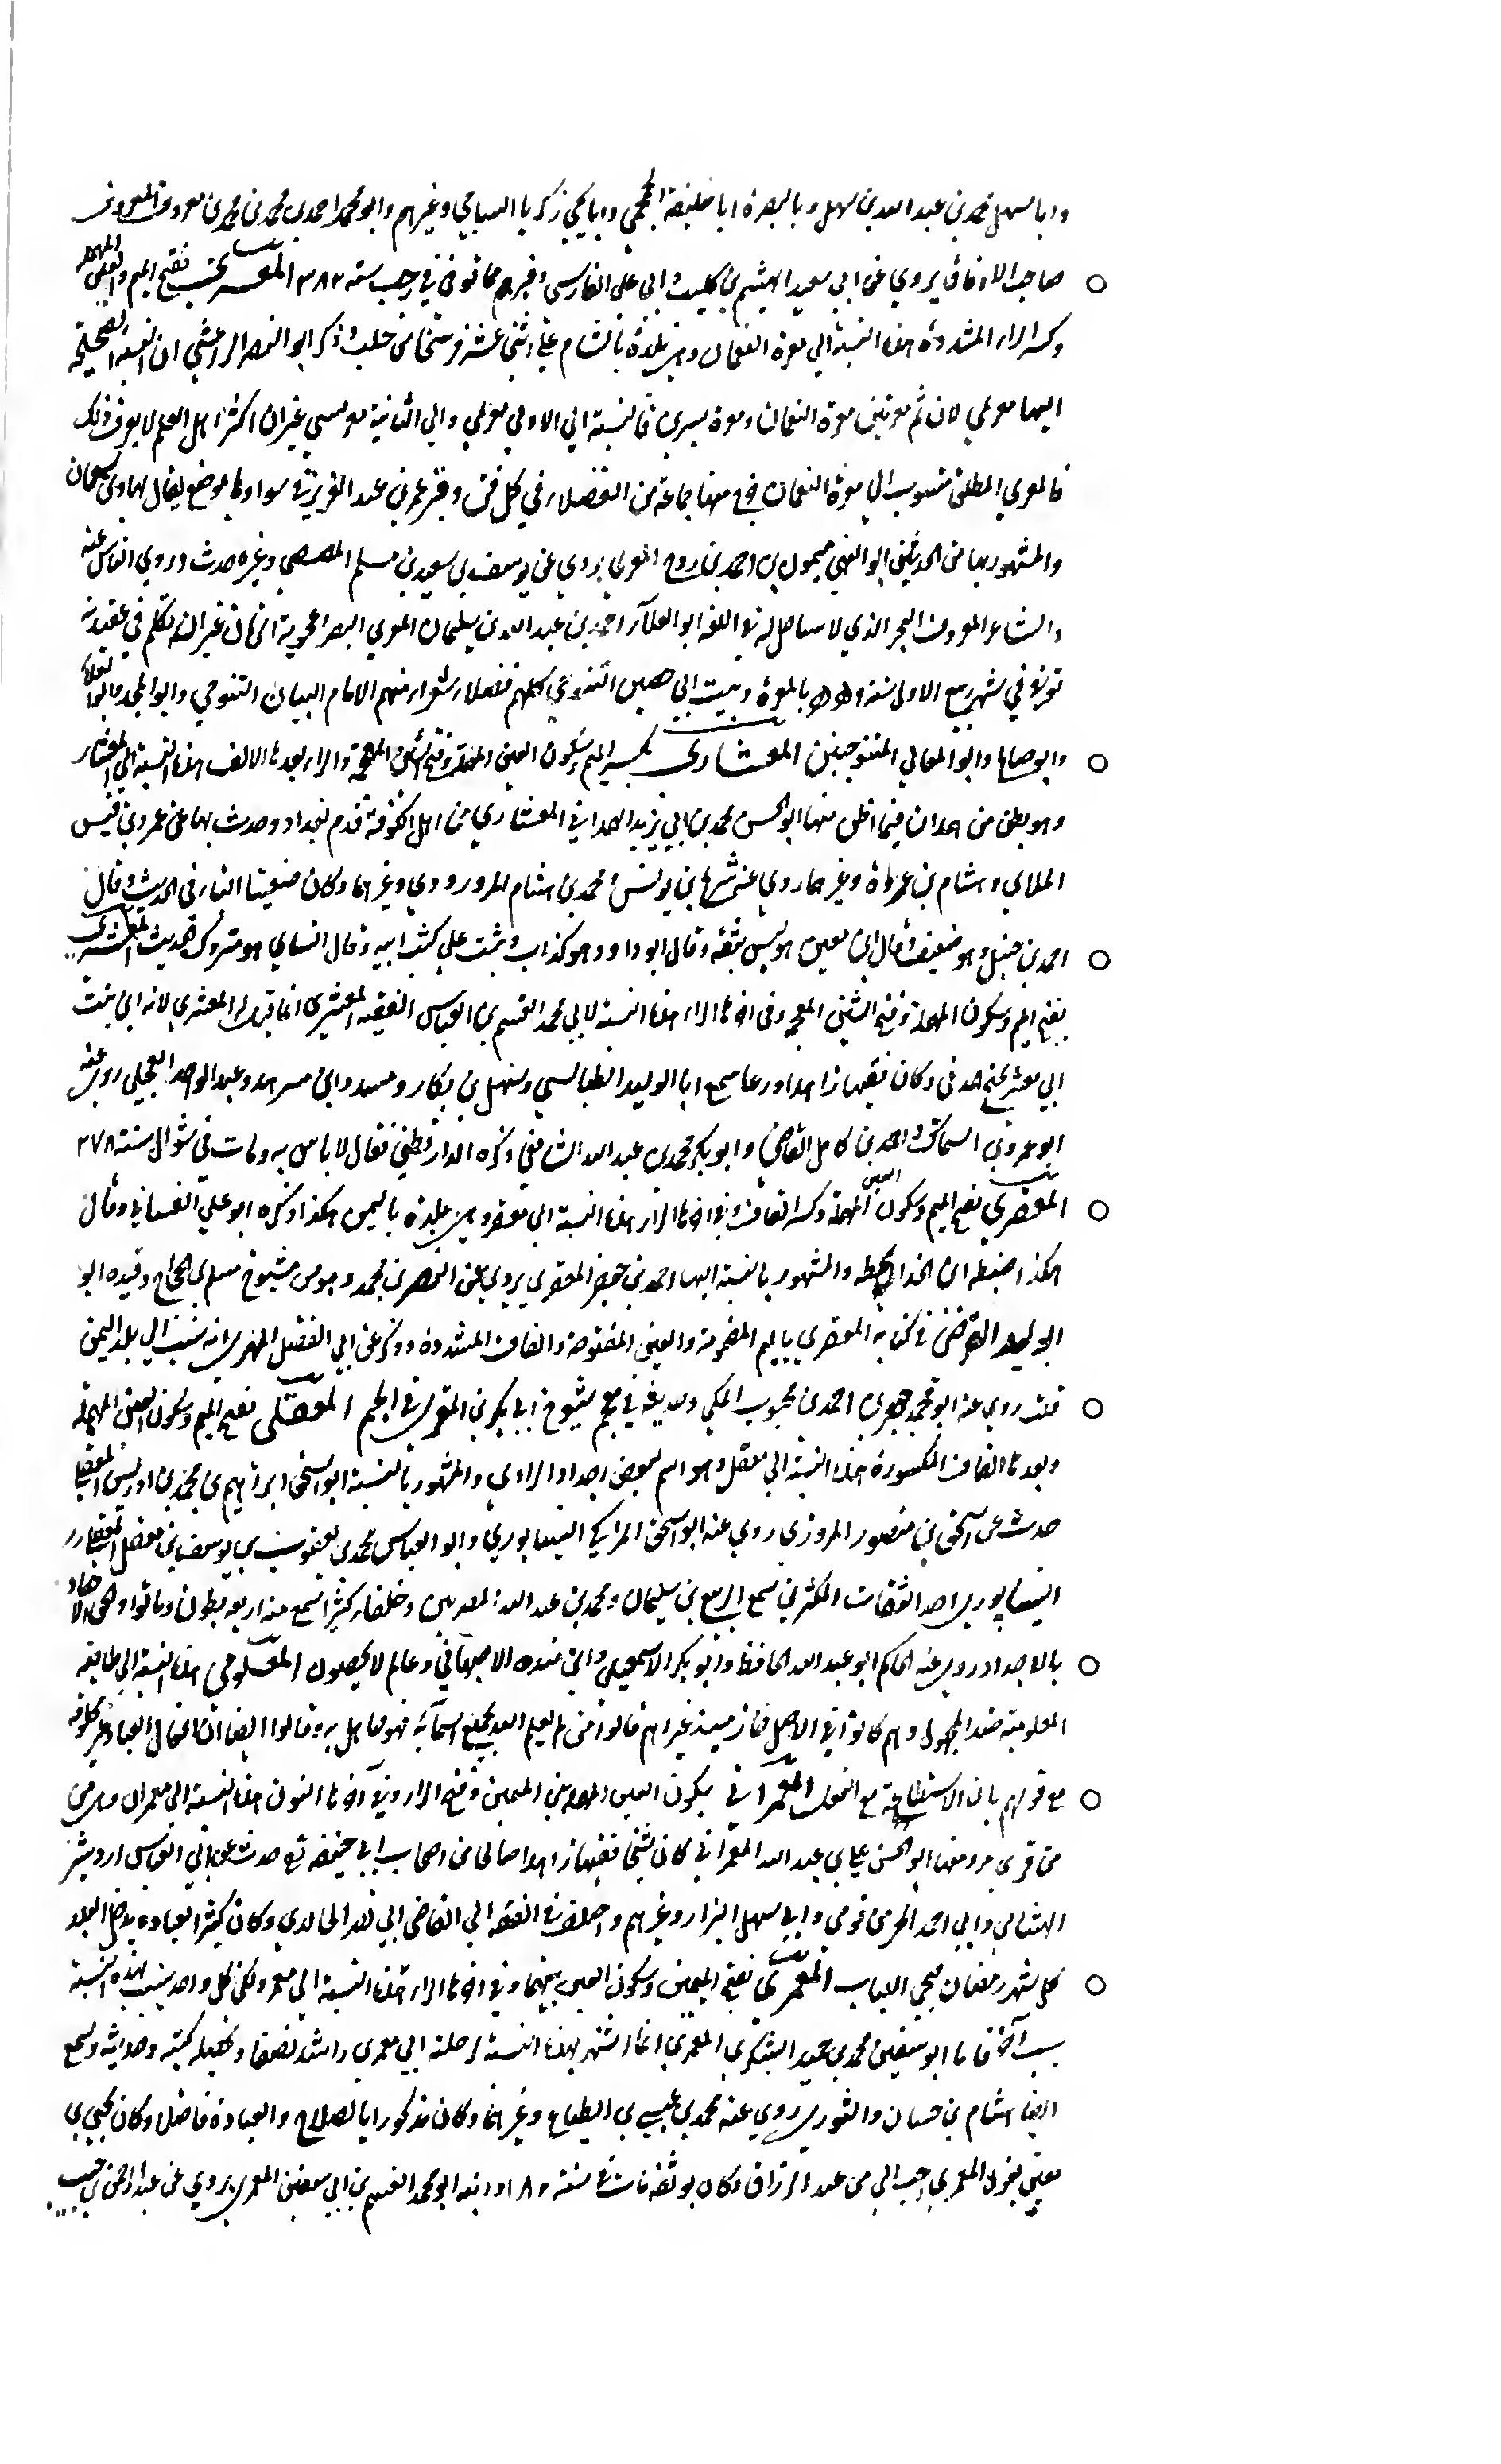 وابا سهل محمد بن عبد الله بن سهل وبالبصرة ابا خليفة الجمحي وابا يحيى زكريا الساجي وغيرهم وابو محمد احمد بن محمد بن محمد بن معروف المعروف
صاحب الاوقاف يروي عن ابي سعيد الهيثم بن كليب وابي علي الفارسي وغيرهما توفي في رجب سنة ٣٨٢ المعري بفتح الميم والعين المهملة
وكسر الراء المشددة هذه النسبة الي معرة النعمان وهي بلدة بالشام علي اثني عشر فرسخا من حلب وذكر ابو النصر الرامشي ان النسبة الصحيحة
اليها معرنمي لان ثم معرتين معرة النعمان ومعرة نسرين فالنسبة الي الاولي معرنمي والي الثانية معرنسي غير ان اكثر اهل العلم لا يعرف ذلك
فالمعري المطلق منسوب الي معرة النعمان خرج منها جماعة من الفضلاء في كل فن وقبر عمر بن عبد العزيز في سوادها موضع يقال لها دير سمعان
والمشهور بها من المحدثين ابو الغني ميمون بن احمد بن روح المعري يروي عن يوسف بن سعيد بن مسلم المصيصي وغيره حدث وروي الناس عنه
والشاعر المعروف البحر الذي لا ساحل له في اللغة ابو العلاء احمد بن عبد الله بن سليمان المعري البصر اعجوبة الزمان غير انه تكلم في عقيدته
توفي في شهر ربيع الاول سنة بالمعرة وبيت ابي حصين التنوخي كلهم فضلاء شعراء منهم الامام البيان التنوخي وابو المجد وابو العلاء
وابو صالح وابو المعالي التنوخيين المعشاري بكسر الميم وسكون العين المهملة وفتح الشين المعجمة والراء بعدها الالف هذه النسبة الي المعشار
وهو بطن من همدان فيما اظن منها ابو الحسن محمد بن ابي يزيد الهمداني المعشاري من اهل الكوفة قدم بغداد وحدث بها عن عمرو بن قيس
الملائي وهشام بن عروة وغيرهما روي عنه شريح بن يونس ومحمد بن هشام المروروذي وغيرهما وكان ضعيفا في الحديث وقال
احمد بن حنبل وهو ضعيف وقال ابن معين هو ليس بثقة وقال ابو داود هو كذاب وثبت علي كتب ابيه وقال النسائي هو متروك الحديث المعشري
بفتح الميم وسكون المهملة وفتح الشين المعجمة وفي اخرها الراء هذه النسبة لابي محمد القسم بن العباس الفقيه المعشري انما قيل له المعشري لانه ابن بنت
ابي معشر نجيح المدني وكان فقيها زاهدا ورعا سمع ابا الوليد الطيالسي وسهل بن بكار ومسدد بن مسرهد وعبد الواحد العجلي روي عنه
ابو عمرو بن السماك واحمد بن كامل القاضي وابو بكر محمد بن عبد الله الشافعي وذكره الدارقطني فقال لا باس به ومات في شوال سنة ٢٧٨
المعقري بفتح الميم وسكون العين المهملة وكسر القاف وفي اخرها الراء هذه النسبة الي معقر وهي بلدة باليمن هكذا ذكره ابو علي الغساني وقال
هكذا ضبطه ابن الحذاء بخطه والمشهور بالنسبة اليها احمد بن جعفر المعقري يروي عن النضر بن محمد وهو من شيوخ مسلم بن الحجاج وقيده ابو
الوليد الفرضي في كتابه المعقري بالميم المضمومة والعين المفتوحة والقاف المشددة وذكر عن ابي الفضل المهري انه نسب الي بلد اليمن
قلت روي عنه ابو محمد جعفر بن احمد بن محبوب المكي وحديثه في معجم شيوخ ابي بكر بن المقري في الجيم المعقلي بفتح الميم وسكون العين المهملة
وبعدها القاف المكسورة هذه النسبة الي معقل وهو اسم لبعض اجداد الراوي والمشهور بالنسبة ابو اسحق ابراهيم بن محمد بن ادريس المعقلي
حدث عن اسحق بن منصور المروزي روي عنه ابو اسحق المزكي النيسابوري وابو العباس محمد بن يعقوب بن يوسف بن معقل المعقلي
النيسابوري احد الثقات المكثرين سمع الربيع بن سليمان ومحمد بن عبد الله المصريين وخلقا كثيرا سمع منه اربعة بطون وماتوا والحق الاحفاد
بالاجداد روي عنه الحاكم ابو عبد الله الحافظ وابو بكر الاسمعيلي وابن منده الاصبهاني وعالم لا يحصون المعلومي هذه النسبة الي طائفة
المعلومية ضد المجهولية وهم كانوا في الاصل خازمية غير انهم قالوا من لم يعلم الله بجميع اسمائه فهو جاهل به وقالوا ايضا ان افعال العباد غير مخلوقة
مع قولهم بان الاستطاعة مع الفعل المعمراني بسكون العين المهملة بين الميمين وفتح الراء وفي اخرها النون هذه النسبة الي معمران وهي من
من قري مرو منها ابو الحسن علي بن عبد الله المعمراني كان شيخا فقيها زاهدا صالحا من اصحاب ابي حنيفة حدث عن ابي العباس اردشير
الهشامي وابي احمد وابي سهل البزار وغيرهم واختلف في الفقه الي القاضي ابي نصر الخالدي وكان كثير العبادة يدخل البلد
كل شهر رمضان يحيي اللياب المعمري بفتح الميمين وسكون العين بينهما وفي اخرها الراء هذه النسبة الي معمر ولكن كل واحد ينسب بهذه النسبة
بسبب اخر فاما ابو سفين محمد بن حميد اليشكري المعمري انما اشتهر بهذه النسبة لرحلته الي معمر بن راشد لصنعاء وكتبته كتبه وحديثه وسمع
ايضا هشام بن حسان والثوري روي عنه محمد بن عيسي بن الطباع وغيرهما وكان مذكورا بالصلاح والعبادة فاضلا وكان يحيي بن
معين يقول المعمري احب الي من عبد الرزاق وكان ثقة مات في سنة ١٨٢ وابنه ابو محمد القسم بن ابي سفين المعمري يروي عن عبد الرحمن بن حبيب